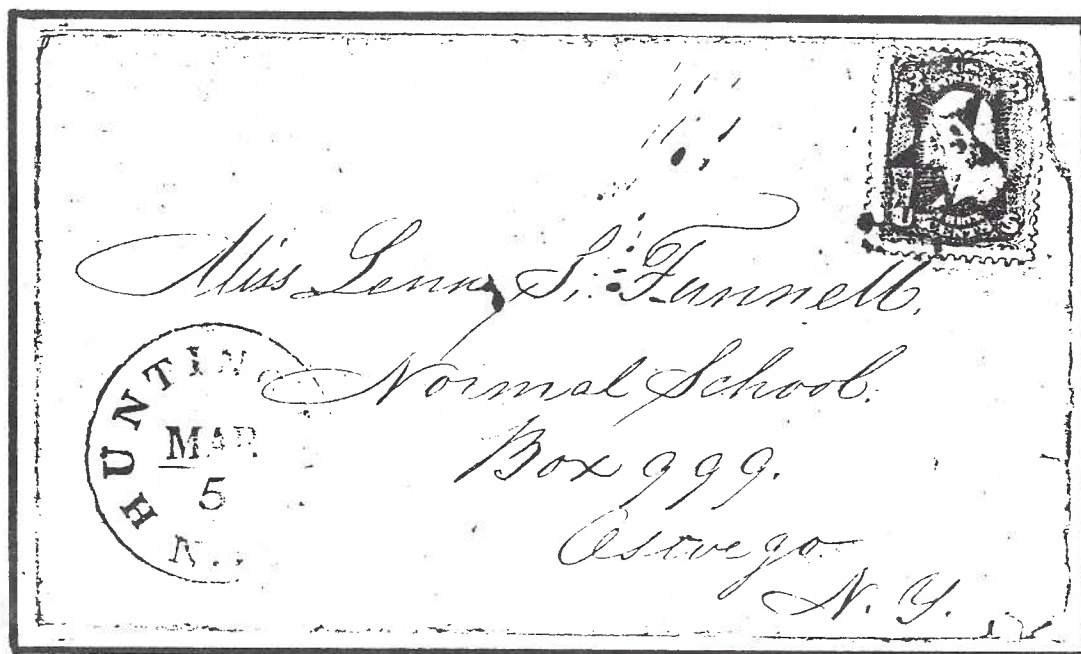 3 U.S. 3
Miss Lenna S. Funnell,
Normal School.
Box 999.
Oswego
N. Y.
HUNTING
MAR
5
N.